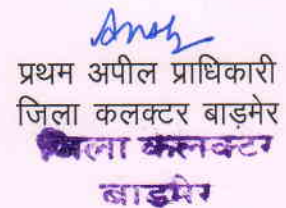 प्रथम अपील प्राधिकारी
जिला कलक्टर बाड़मेर
जिला कलक्टर
बाड़मेर